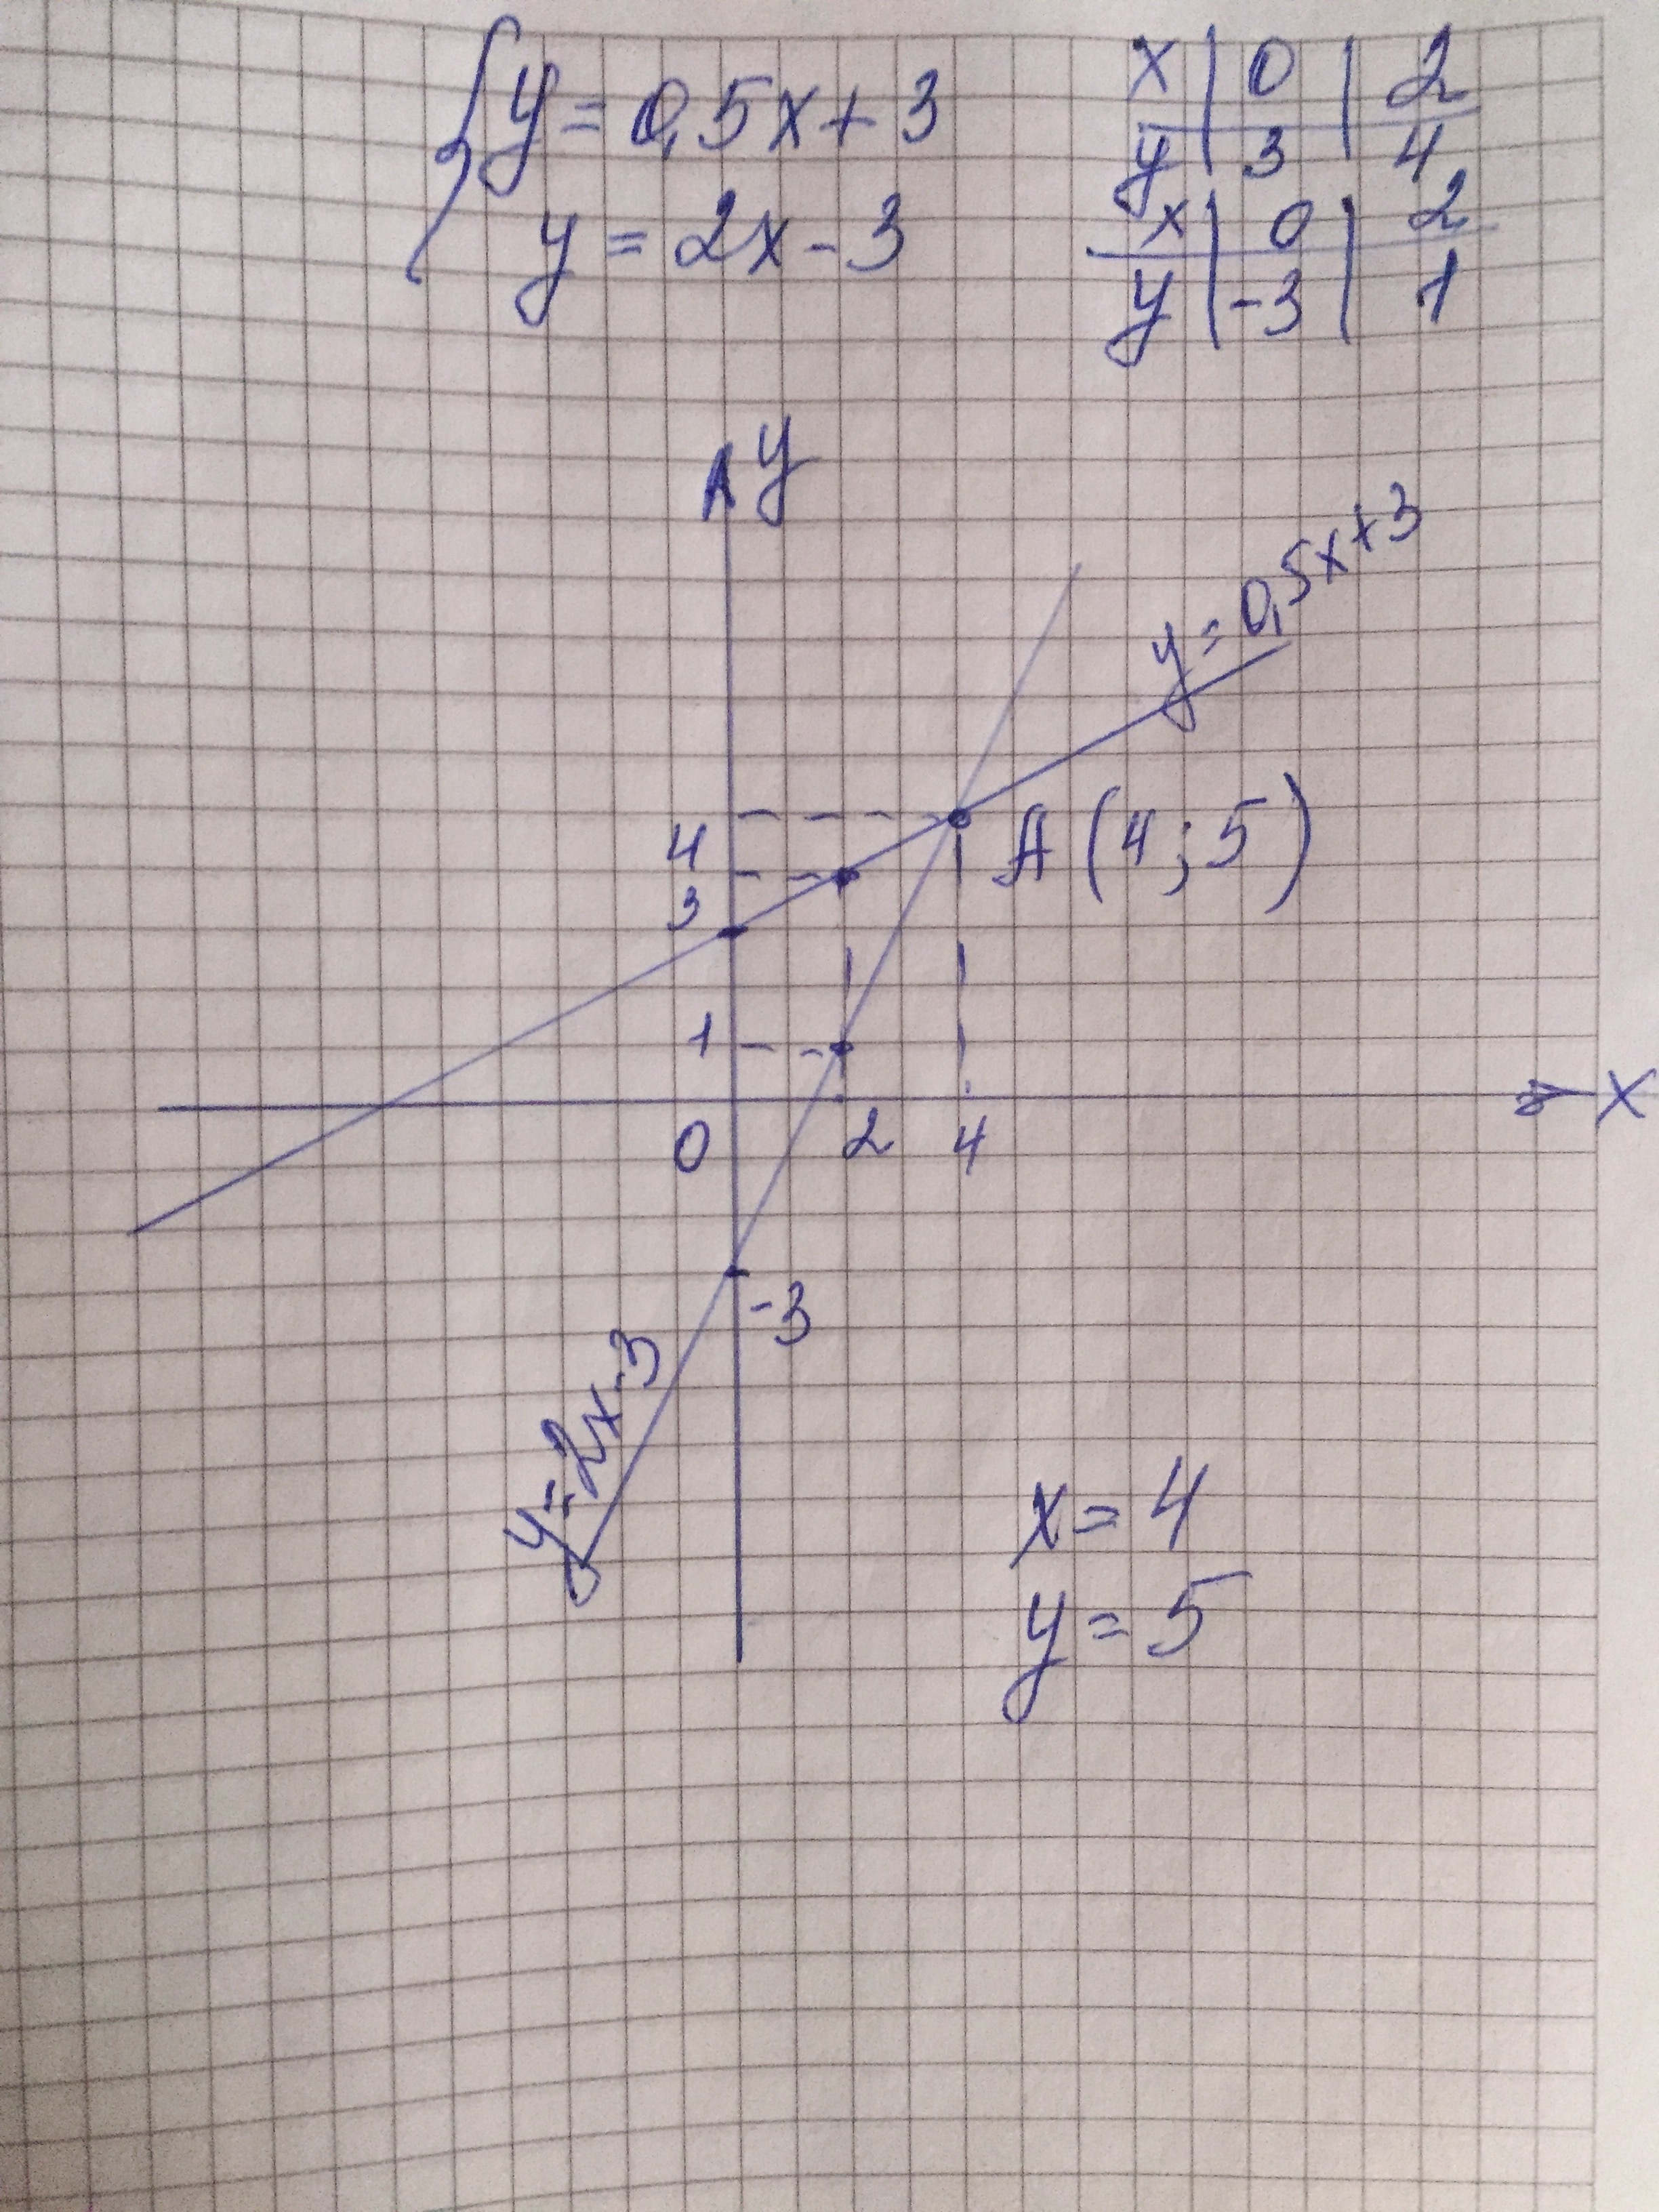 y = 0,5x + 3
y = 2x - 3
x | 0 | 2
y | 3 | 4
x | 0 | 2
y | -3 | 1
y
y = 0,5x + 3
A (4; 5)
4
3
1
0
2
4
x
-3
y = 2x - 3
x = 4
y = 5